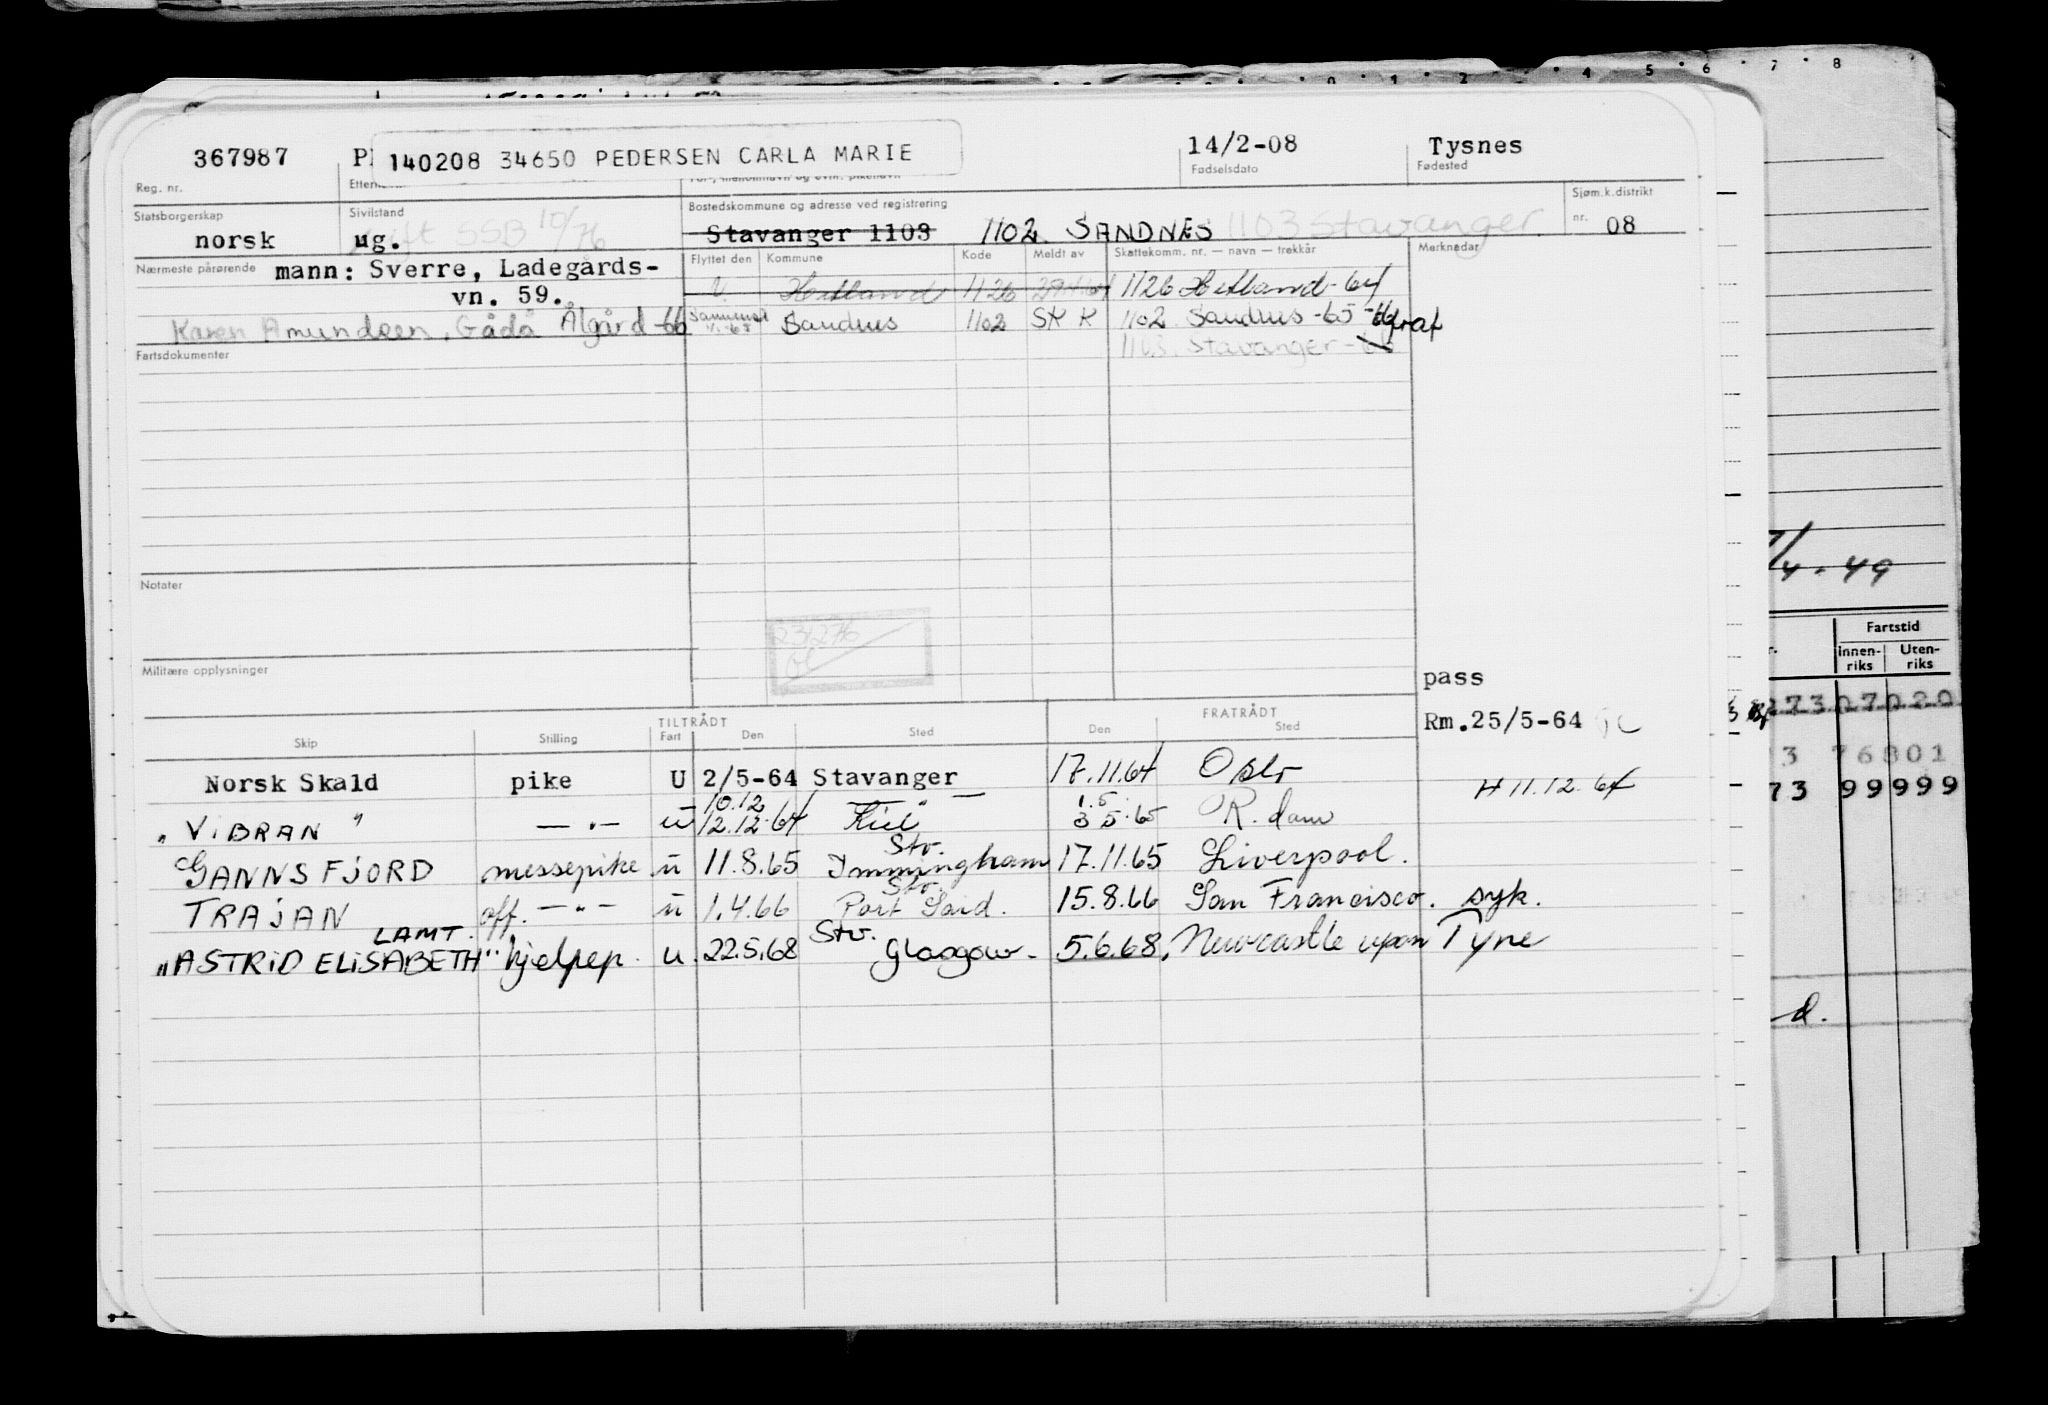 367987 140208 34650 PEDERSEN CARLA MARIE 14/2-08 Tysnes
Reg. nr. Fødselsdato Fødested
Statsborgerskap Sivilstand Bostedskommune og adresse ved registrering Sjøm.k.distrikt
norsk ug. gift SSB 10/76 Stavanger 1103 1102 SANDNES 1103 Stavanger nr. 08
Nærmeste pårørende mann: Sverre, Ladegårds- Flyttet den Kommune Kode Meldt av Skattekomm. nr. — navn — trekkår Merknader
vn. 59. Hetland 1126 1126 Hetland-64
Karen Amundsen, Gådå Ålgård-66 Sandnes 1102 SK K 1102 Sandnes-65-66
Fartsdokumenter 1103 Stavanger-
Notater
Militære opplysninger
pass
TILTRÅDT FRATRÅDT Rm.25/5-64
Skip Stilling Fart Den Sted Den Sted
Norsk Skald pike U 2/5-64 Stavanger 17.11.64 Oslo
H 11.12.64
10.12 1.5
"VIBRAN" — " — u 12.12.64 Kiel 3 5.65 R.dam
Stv.
GANNSFJORD messepike u 11.8.65 Immingham 17.11.65 Liverpool.
Stv.
TRAJAN off. — " — u 1.4.66 Port Said. 15.8.66 San Francisco. syk.
LAMT. Stv.
"ASTRID ELISABETH" hjelpep. u. 22.5.68 Glasgow- 5.6.68, Newcastle upon Tyne
4.49
Fartstid
Innen-riks Uten-riks
273 07020
3 76801
73 99999
d.